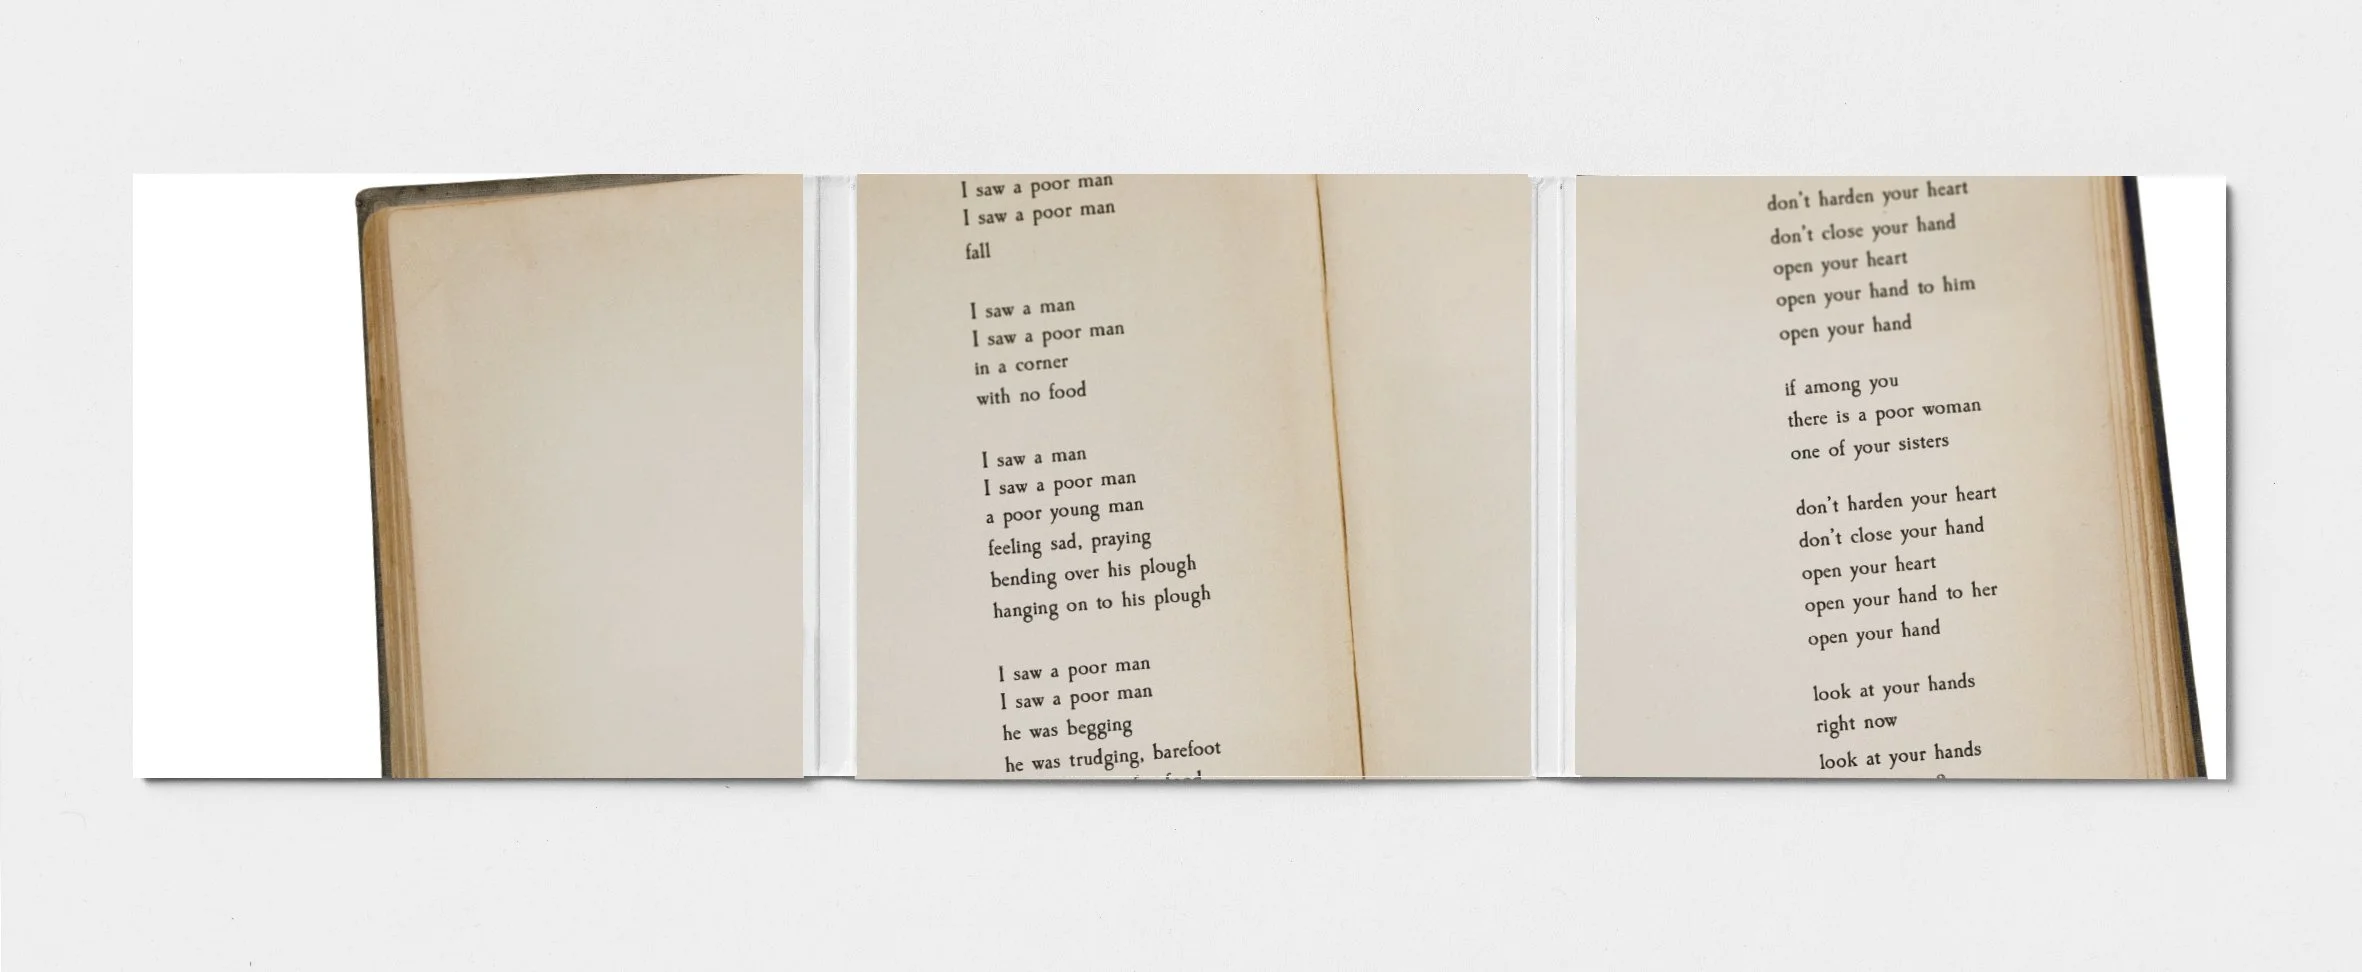 I saw a poor man
I saw a poor man
fall
I saw a man
I saw a poor man
in a corner
with no food
I saw a man
I saw a poor man
a poor young man
feeling sad, praying
bending over his plough
hanging on to his plough
I saw a poor man
I saw a poor man
he was begging
he was trudging, barefoot
don't harden your heart
don't close your hand
open your heart
open your hand to him
open your hand
if among you
there is a poor woman
one of your sisters
don't harden your heart
don't close your hand
open your heart
open your hand to her
open your hand
look at your hands
right now
look at your hands